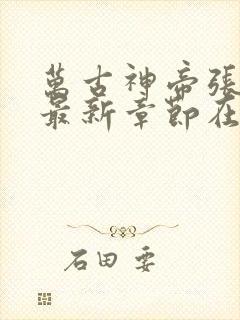 萬古神帝張
最新章節在
石田 要